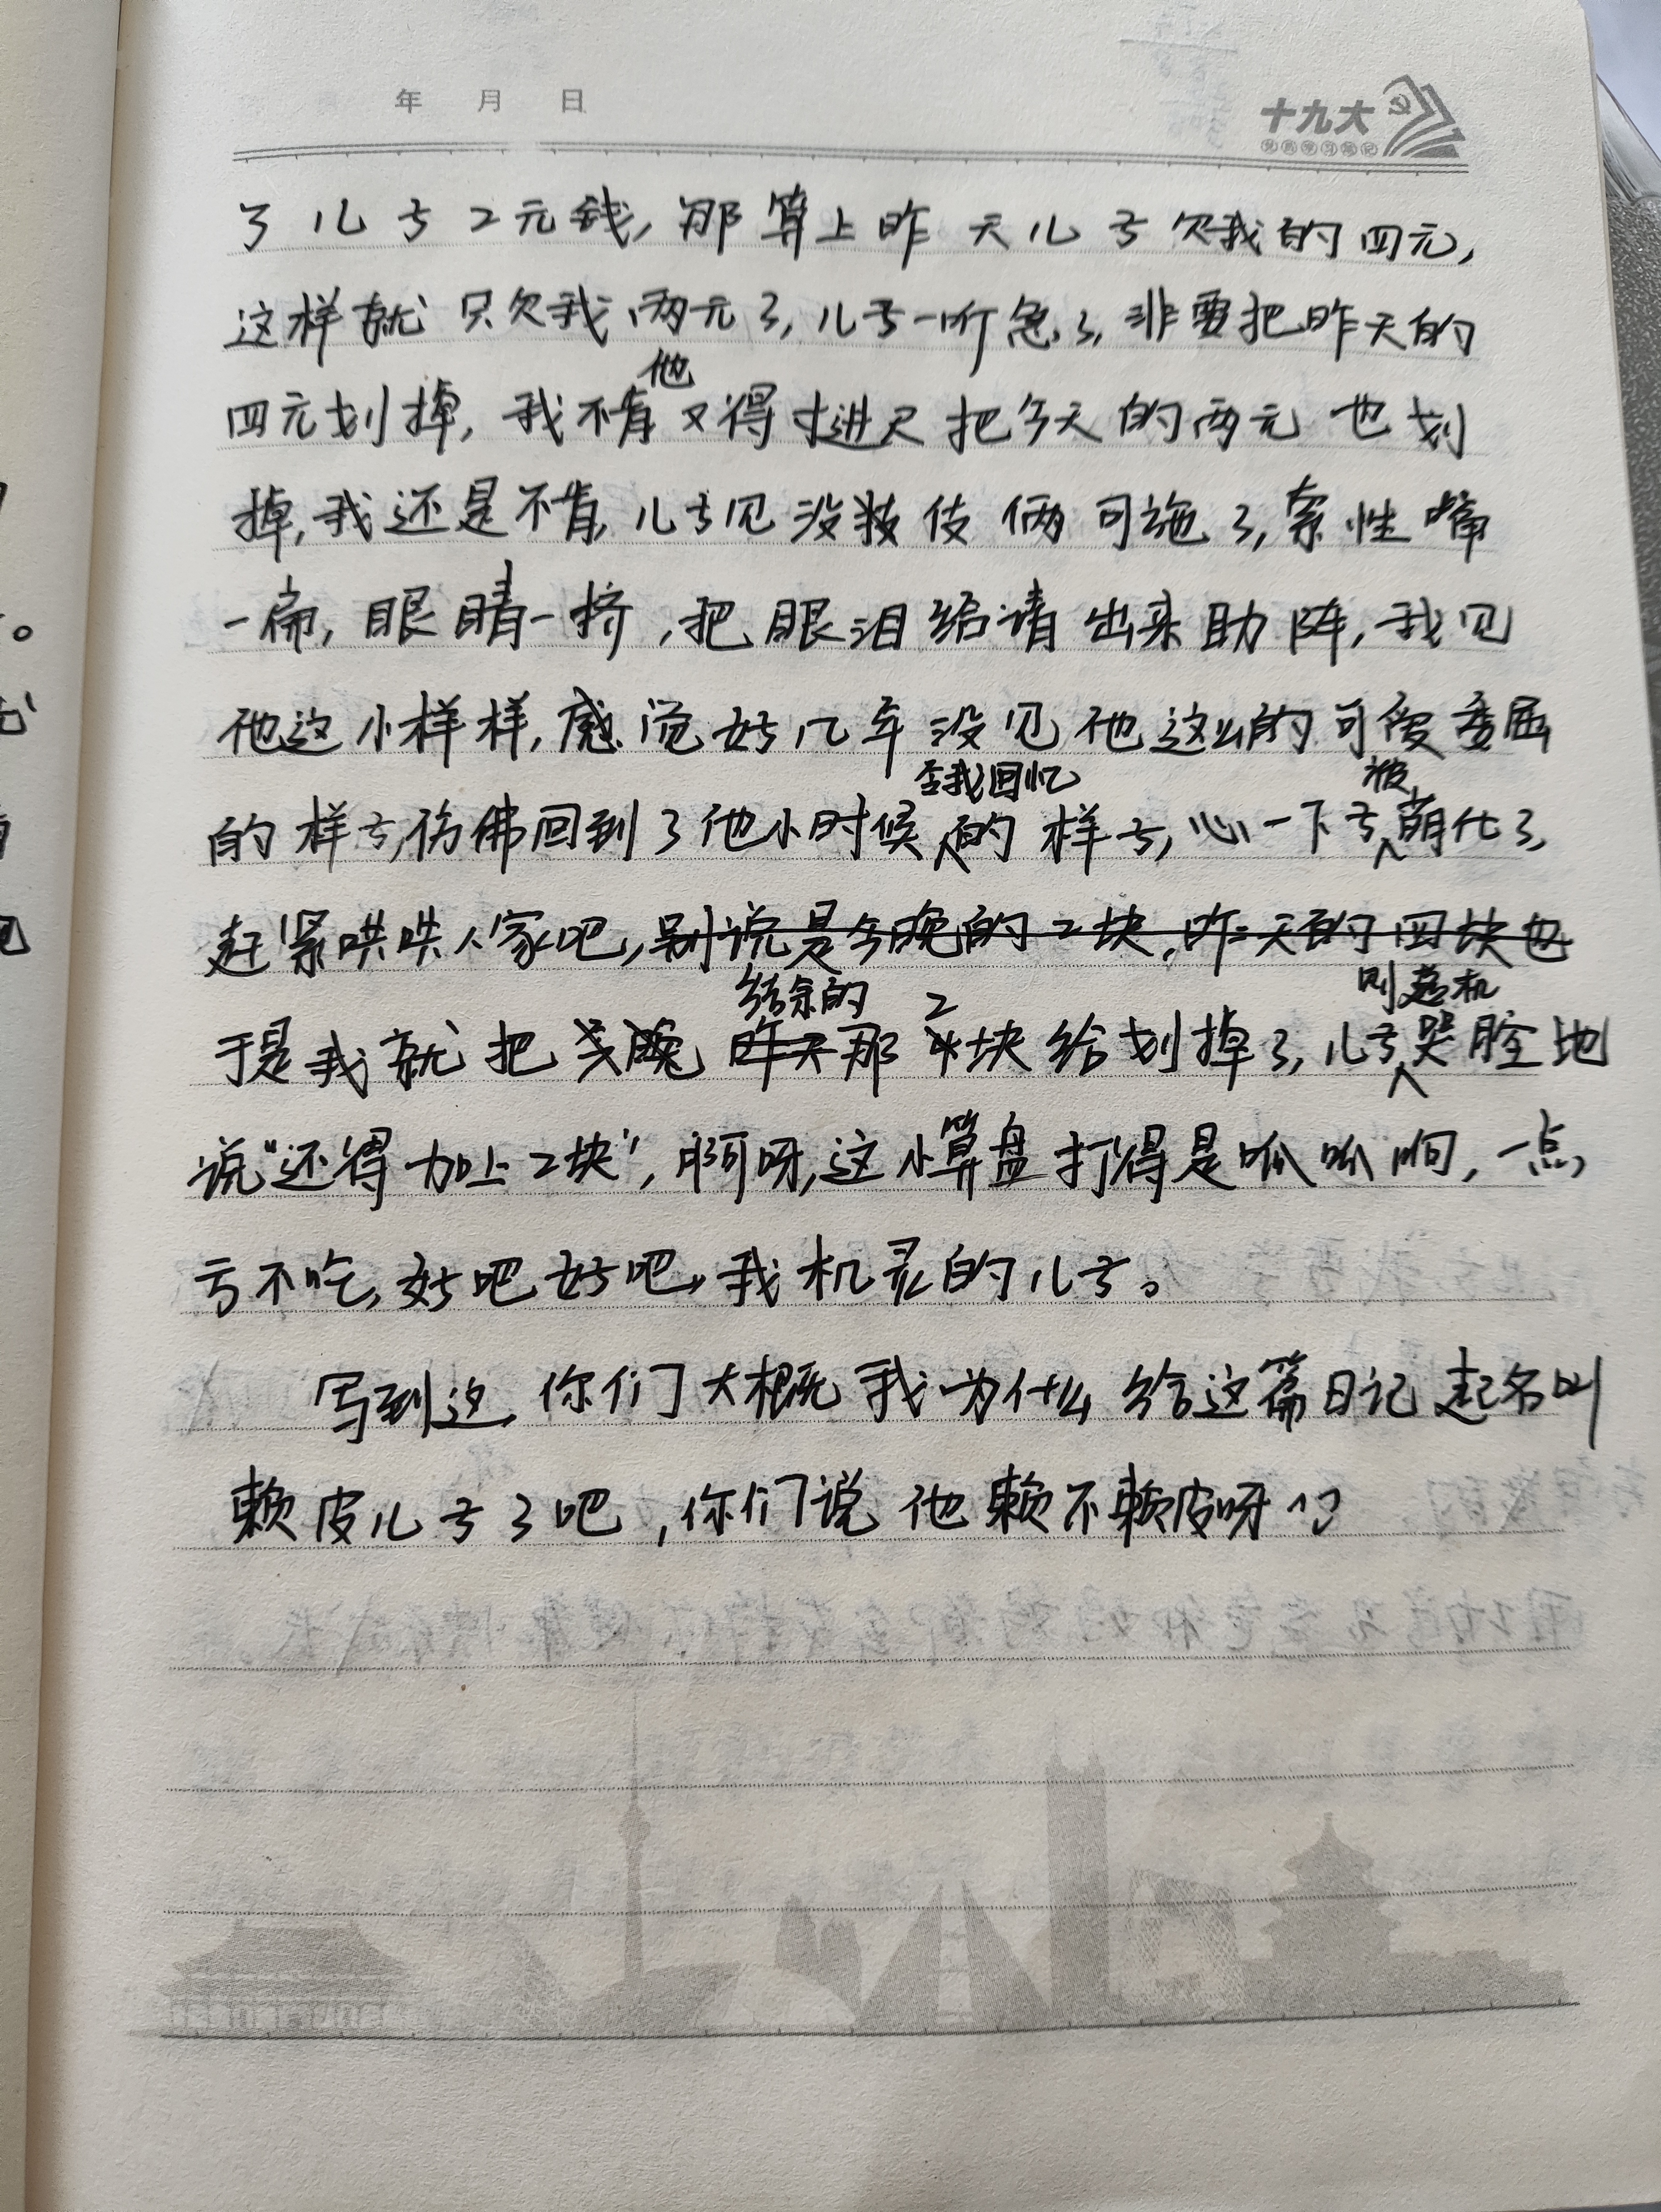 年 月 日
十九大
了儿子2元钱,那算上昨天儿子欠我的四元,
这样就只欠我两元了,儿子一听急了,非要把昨天的
四元划掉,我不肯他又得寸进尺把今天的两元也划
掉,我还是不肯,儿子见没招伎俩可施了,索性嘴
一扁,眼睛一挤,把眼泪给请出来助阵,我见
他这小样样,感觉好几年没见他这么的可爱委屈
的样子,仿佛回到了他小时候含我回忆的样子,心一下子被萌化了,
赶紧哄哄人家吧,别说是今晚的2块,昨天的四块也
于是我就把今晚昨天结余的那2块给划掉了,儿子则趁机哭腔地
说“还得加上2块”,啊呀,这小算盘打得是呱呱响,一点
亏不吃,好吧好吧,我机灵的儿子。
写到这,你们大概我为什么给这篇日记起名叫
赖皮儿子了吧,你们说他赖不赖皮呀